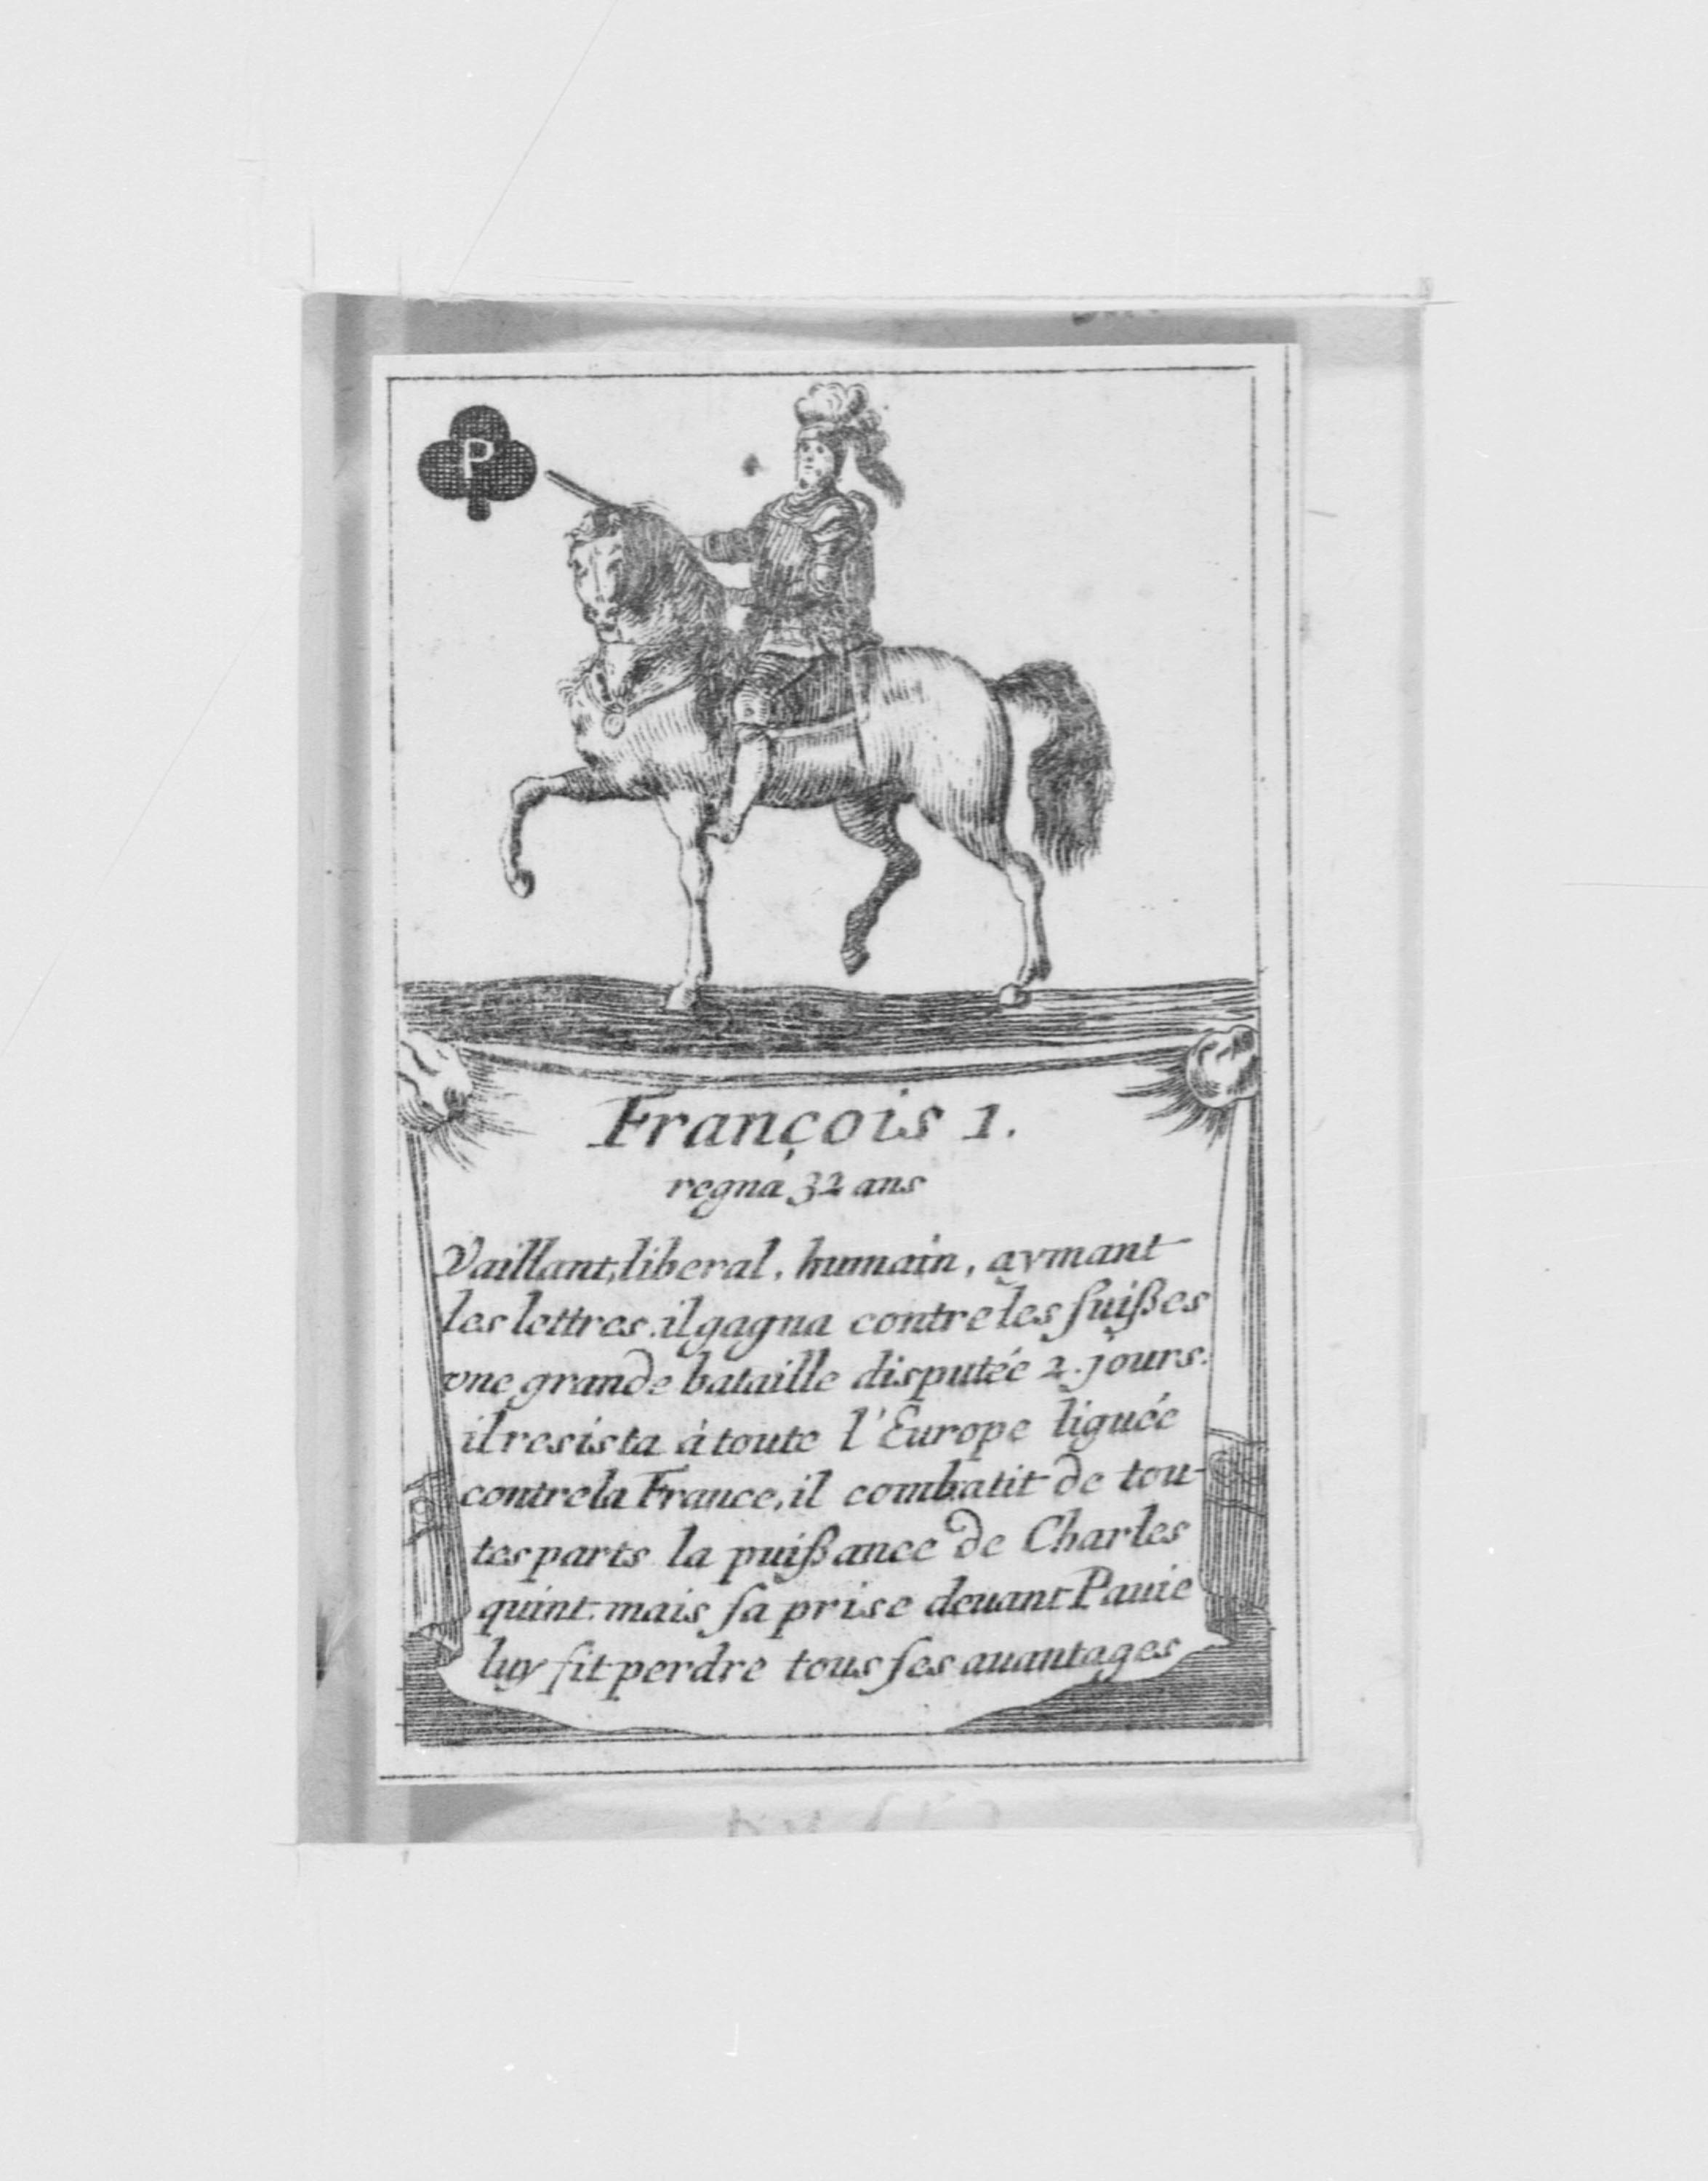 P
François 1.
regna 32 ans
Vaillant, liberal, humain, aymant
les lettres. il gagna contre les ſuißes
vne grande bataille disputée 2. jours.
il resista à toute l'Europe liguée
contre la France, il combatit de tou-
tes parts la puißance de Charles
quint. mais ſa prise deuant Pauie
luy fit perdre tous ſes auantages